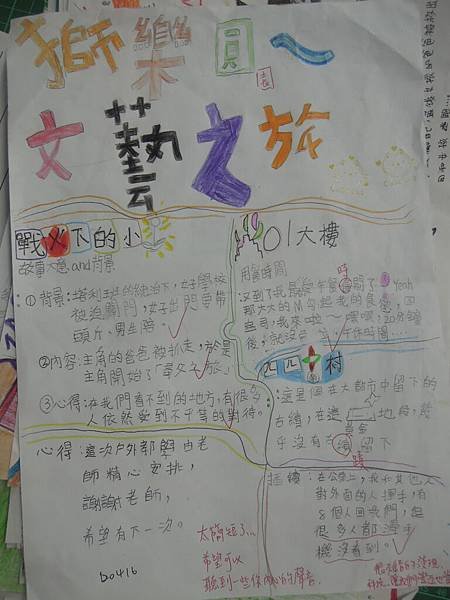 獅樂園～
文藝之旅
戰火下的小
故事大意and背景
①背景:塔利班的統治下,女子學校
被迫關門,女子出門要帶
頭斤,男生陪。
②內容:主角的爸爸被扒走,於是
主角開始了「尋父之旅」
③心得:在我們看不到的地方,有很多
人依然受到不平等的對待。
心得:這次戶外郊學由老
師精心安排,
謝謝老師,
希望有下一次。
太簡短了…
希望可以
聽到一些你內心的聲音.
b0416
101大樓
用餐時間
又到了我最
時
Yeah
那大大的M勾起我的食慾,
司,我來啦～嘿嘿,20分鐘
後,就沒
四四村
:這是個在大都市中留下的
古績,在這
黃金
地段,幾
乎沒有古
留下
蹟
插續:在公車上,我和其他人
對外面的人揮手,有
8個人回我們,但
很多人都滑手
機沒看到。